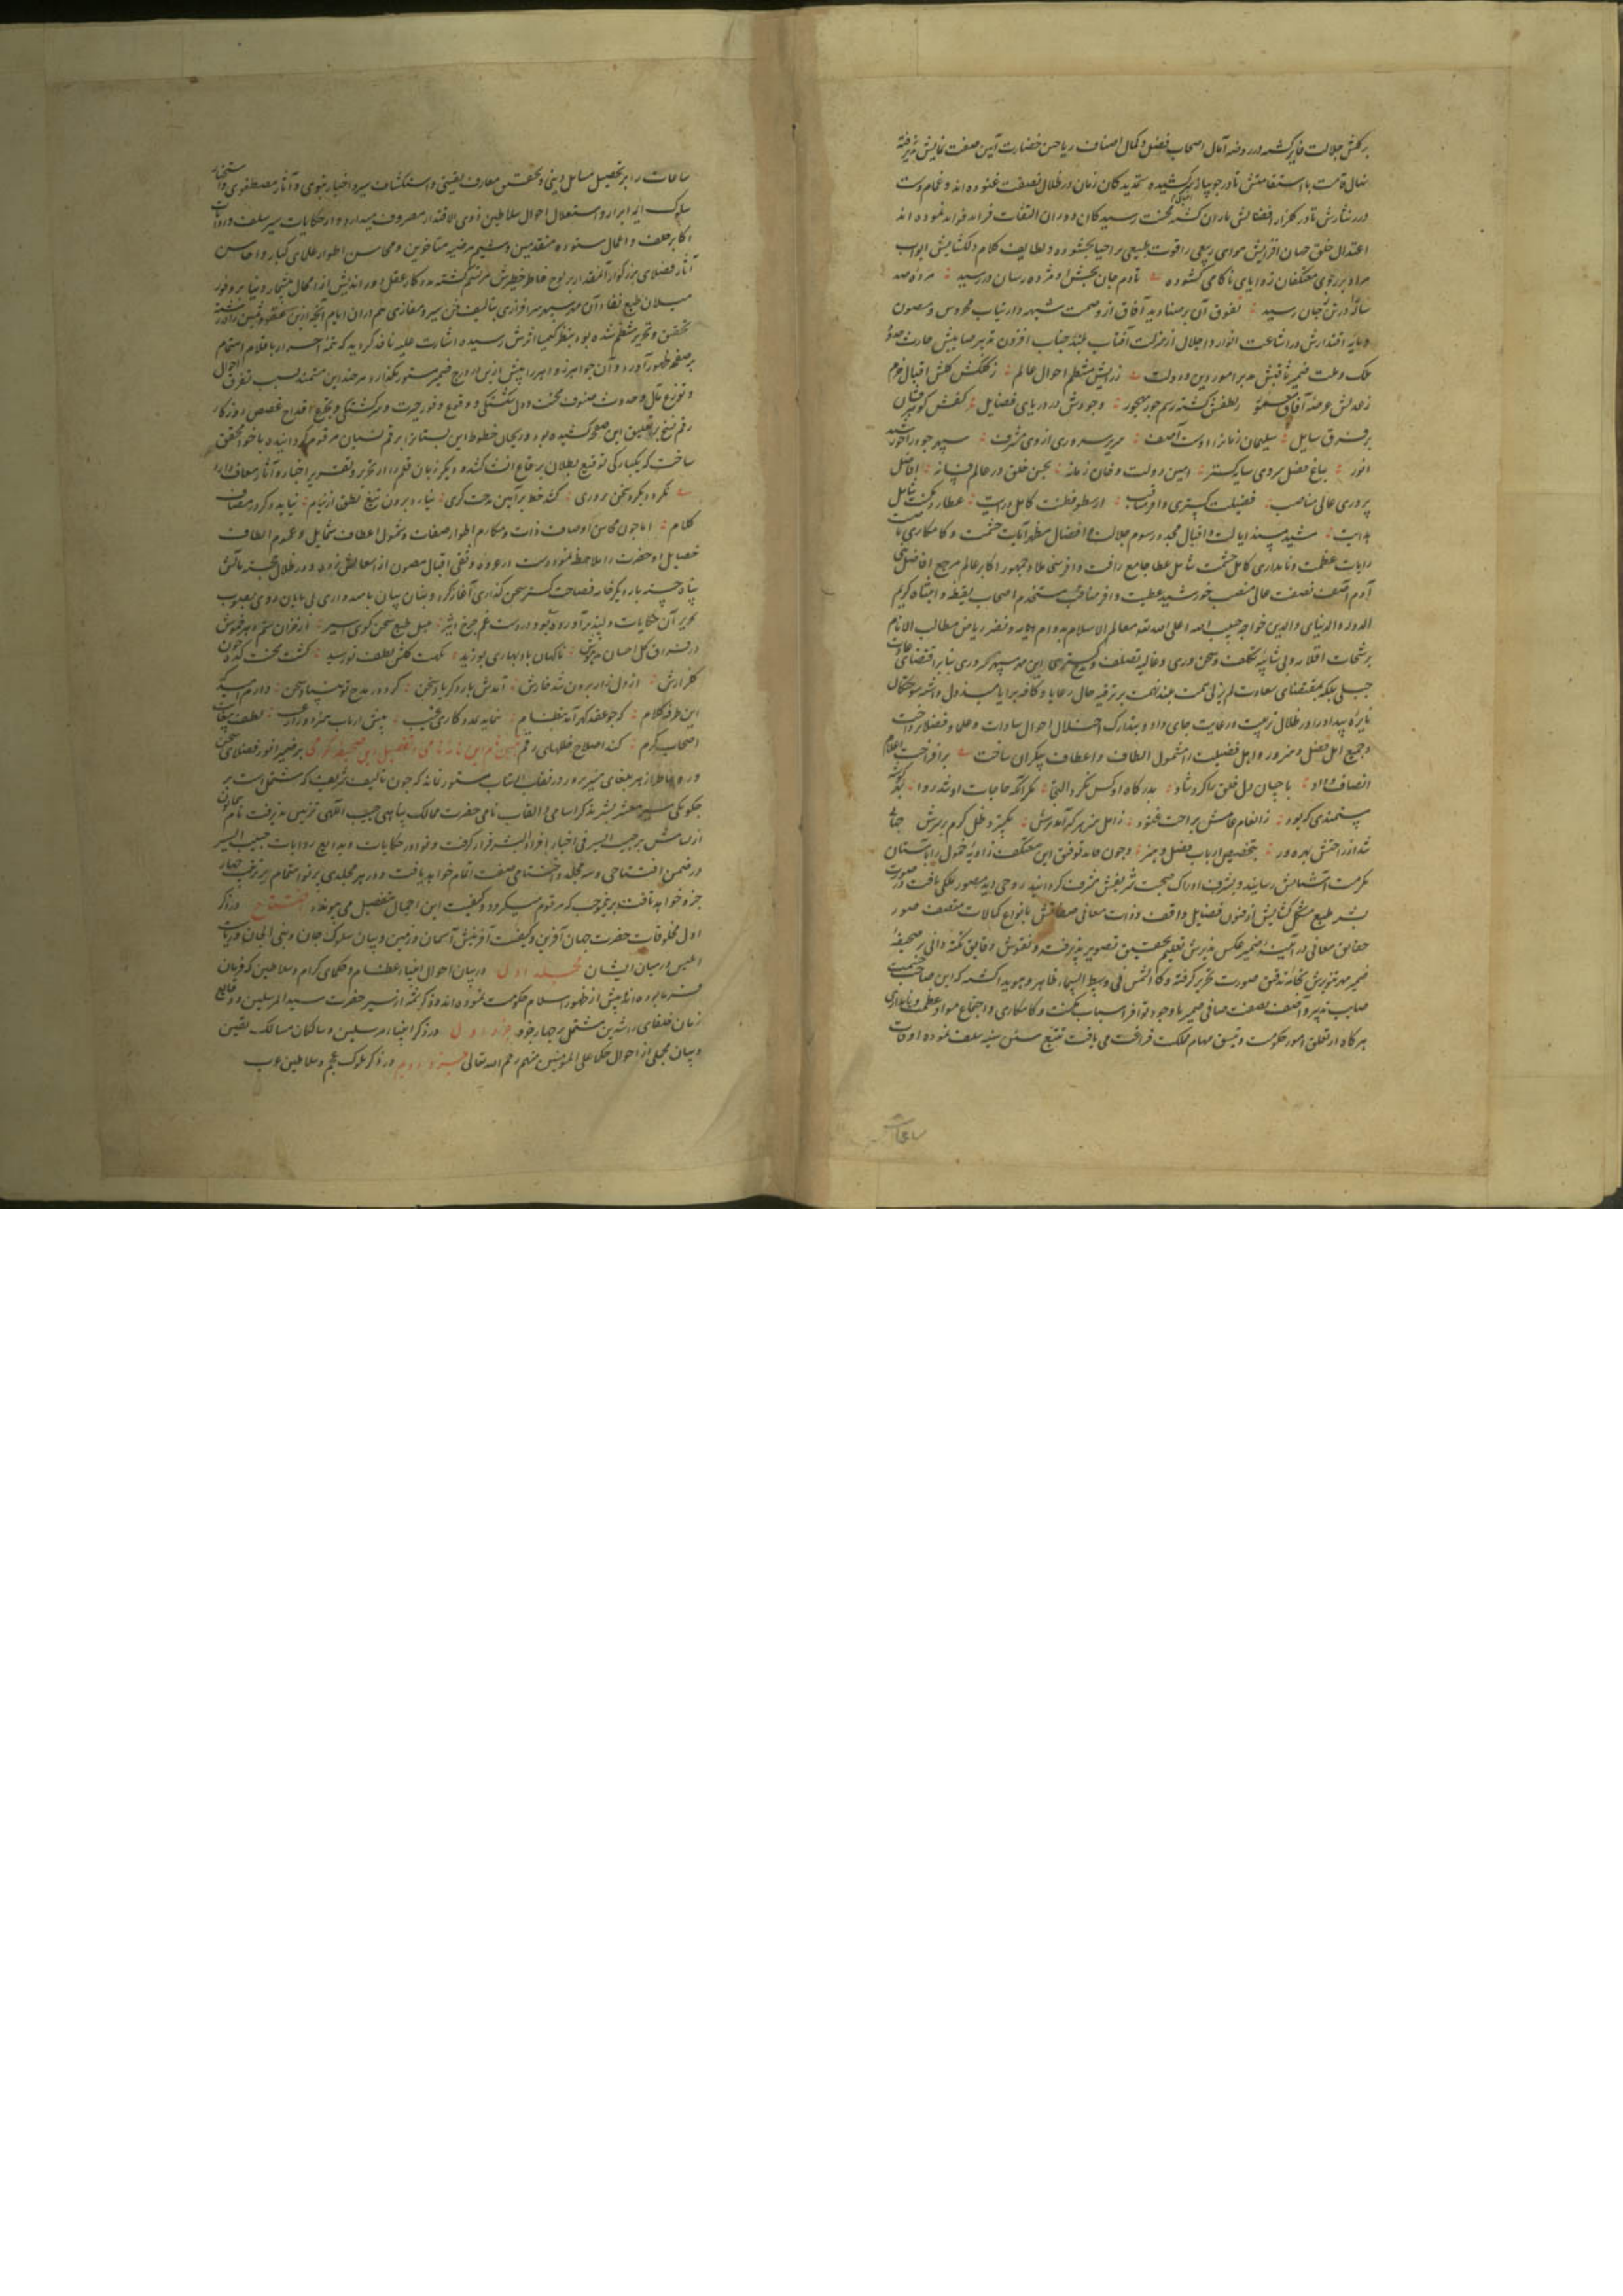 برکلش جلالت فایز کشته در روضه آمال اصحاب فضل و کمال اصناف ریاحین خضارت آیین صفت نمایش پذیرفته
نهال قامت با استقامتش تا در جویبار بزرگی کشیده ستمدیدکان زمان در ظلال نصفت غنوده‌اند و غمام دست
درر نثارش تا در کلزار افضالش باران کشته محنت رسیدکان دوران التقاط فراید فواید نموده‌اند
اعتدال خلق جهان افزایش هوای ربیعی را قوت طبیعی بر احیا بخشوده و لطایف کلام دلکشایش ابواب
مراد بر روی معتکفان زوایای ناکامی کشوده تا دم جان بخش او مژده رسان در رسید مرده صد
ساله را در تن جان رسید تفوق آن بر صنادید آفاق از وصمت شبهه و ارتیاب محروس و مصون
و پایه اقتدارش در اشاعت انوار و اجلال از منزلت آفتاب بلند جناب افزون تدبیر صایبش عمارت
ملک و ملت ضمیر ثاقبش مدبر امور دین و دولت ز رایش منتظم احوال عالم ز کلکش کلشن اقبال خرم
ز عدلش عرصه آفاق ز لطفش کشته رسم جور مهجور وجودش در دریای فضایل کفش کوهرفشان
بر فرق سایل سلیمان زمانرا اوست آصف سریر سروری از وی مشرف سپهر جود را خورشید
انور بباغ فضل سروی سایه‌کستر امین دولت و خان زمانه بحسن خلق در عالم فسانه افاضل
پروری عالی مناصب فضیلت کستری وافر مناقب ارسطو فطنت کامل درایت عطارد
هدایت مشید مسند ایالت و اقبال مجدد رسوم جلالت و افضال مظهر آیات حشمت و کامکاری
رایات عظمت و نامداری کامل حشمت شامل عطا جامع رافت وافر سخا ملاذ جمهور اکابر عالم مرجع افاضل بنی
آدم آصف نصفت عالی منصب خورشید عطیت وافر مناقب مستخدم اصحاب
الدوله والدنیا والدین خواجه حبیب الله اعلی الله تعالی معالم الاسلام بدوام ونضر ریاض مطالب الانام
برشحات اقلامه و بی شایبه تکلف و سخن وری و غایله تصلف و مدح کستری این مهر سپهر سروری بنابر اقتضای
جبلی بلکه بمقتضای سعادت لم یزلی همت بلند نهمت بر ترفیه حال رعایا و کافه برایا مبذول داشته
نایره بیداد را در ظلال تربیت و رعایت جای داد و بتدارک اختلال احوال سادات و علما و فضلا پرداخت
و جمیع اهل فضل و هنر و اهل فضیلت را مشمول الطاف و اعطاف بیکران ساخت برافراخت
انصاف و داد باحسان دل خلق را کرد شاد بدرکاه او کس نکرد التجا مکر آنکه حاجات او شد روا
مستمندی که بود ز انعام عامش براحت غنود ز اهل هنر هر که آمد برش بکسترد ظل کرم بر سرش جهانی
شد از راحتش بهره‌ور بتخصیص ارباب فضل و هنر و چون قاید توفیق این معتکف زاویه خمول را بآستان
مکرمت آشیانش رسانید و بشرف ادراک صحبت شریفش مشرف کردانید روحی دید مصور
بشر طبیع مشکل کشایش از فنون فضایل واقف و ذات معانی صفاتش بانواع کمالات متصف صور
حقایق معانی در آیینه ضمیر عکس پذیرش بقلم تحقیق تصویر پذیرفته و نقوش دقایق نکته دانی بر صحیفه
ضمیر مهر تنویرش بخامه تدقیق صورت تحریر کرفته وکالشمس فی وسط السماء ظاهر و هویدا کشت که این صاحب
صایب تدبیر و آصف نصفت صافی ضمیر با وجود توافر اسباب مکنت و کامکاری و اجتماع مواد عظمت و نامداری
هرکاه از تعلق امور حکومت و تنسیق مهام مملکت فراغت می یافت تتبع سنن سنیه سلف نموده اوقات
ساعات
ساعات را بر تحصیل مسایل دینی و تحقیق معارف یقینی و استکشاف سیر و اخبار نبوی و آثار مصطفوی و
سلوک ائمه ابرار و استعلام احوال سلاطین ذوی الاقتدار مصروف میدارد و از حکایات سیر سلف و روایات
اکابر خلف و اعمال ستوده متقدمین و شیم مرضیه متاخرین و محاسن اطوار علمای کبار و احاسن
آثار فضلای بزرکوار آنمقدار بر لوح خاطر خطیرش مرتسم کشته که کار عقل دور اندیش از احصای آن
میلان طبع نقاد آن مهر سپهر سرافرازی بتالیف فن سیر و مغازی هم در آن ایام آنچه از این عقود ثمین در رشته
تحقیق و تحریر منتظم شده بود بنظر کیمیا اثرش رسیده اشارت علیه نافذ کردید که تتمه اجزا را باقلام اهتمام
بر صفحه ظهور آورد و آن جواهر زواهر را بیش ازین در درج ضمیر مستور نکذارد هرچند این مستمند بسبب تفرق احوال
و توزع بال و حدوث صنوف محنت و دل شکستکی و وقوع وفور حیرت و سرکشتکی و تجرع اقداح غصص روزکار
رقم نسخ بر تعلیق این صحف کشیده بود و ریحان خطوط این بستانرا برقم نسیان مرقوم کردانیده با خود محقق
ساخت که یکبارکی توقیع بطلان بر رقاع انشا کشد و دیکر زبان قلم را از تحریر و تقریر اخبار و آثار معاف دارد
نکردد بکرد سخن پروری کشد خط بر آیین مدحت کری نیارد برون تیغ نطق از نیام نیاید دکر در مصاف
کلام اما چون محاسن اوصاف ذات و مکارم اطوار صفات و شمول اعطاف شمایل و عموم الطاف
خصایل او حضرت را ملاحظه نمود دست در عروه وثقی اقبال مصون از انفصالش زده و در ظلال
پناه جسته بار دیکر خامه فصاحت کستر سخن کذاری آغاز کرد و بنان بیان بامیدواری بی پایان روی بصوب
تحریر آن حکایات دلپذیر آورد و بود در دست غم چرخ اثیر بلبل طبع سخن کوی اسیر از خزان ستم دهر خموش
در فراق کل احسان مدهوش ناکهان باد بهاری بوزید نکهت کلشن لطف تو رسید کشت محنت کده چون
کلزارش از دل زار برون شد خارش آمدش یار دکر یار سخن کرد در مدح تو بنیاد سخن دارم امید
این طرفه کلام که چو عقد کهر آمد بنظام نماید مددکاری غیب پیش ارباب هنر دور از عیب لطف
اصحاب کرم کند اصلاح خللهای رقم تعیین نام این نامه نامی و تفصیل این صحیفه کرامی بر ضمیر انور فضلای سخن
ور و خاطر ازهر بلغای هنر پرور در نقاب احتجاب مستور نماند که چون تالیف شریف که مشتملست بر
چکونکی سیر معشر بشر بذکر اسامی و القاب نامی حضرت ممالک پناهی حبیب اللهی تزیین پذیرفت نام همایون
از لب هاتف بر حبیب السیر فی اخبار افراد البشر قرار کرفت و نوادر حکایات و بدایع روایات حبیب السیر
در ضمن افتتاحی و سه مجلد و اختتامی صفت اتمام خواهد یافت و در هر مجلدی پرتو اهتمام بر ترتیب چهار
جزو خواهد تافت بر بموجب که مرقوم میکردد و کیفیت این اجمال بتفصیل می پیوندد افتتاح در ذکر
اول مخلوقات حضرت جهان آفرین و کیفیت آفرینش آسمان و زمین و بیان سلوک جان و بنی الجان و
ابلیس در میان ایشان مجلد اول در بیان احوال انبیاء عظام و حکمای کرام و سلاطین که فرمان
فرما بوده‌اند پیش از ظهور اسلام حکومت نموده‌اند و ذکر شمه از سیر حضرت سید المرسلین و وقایع
زمان خلفای راشدین مشتمل بر چهار جزو جزو اول در ذکر انبیاء مرسلین و سالکان مسالک یقین
و بیان مجملی از احوال حکما علی المومنین منهم رحم الله تعالی جزو دویم در ذکر ملوک عجم و سلاطین عرب